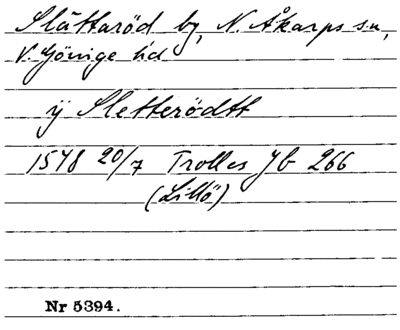 Slättaröd by, N. Åkarps sn,
V. Göinge hd
ÿ Sletterödtt
1578 20/7 Trolles Jb 266
(Lillö)
Nr 5394.